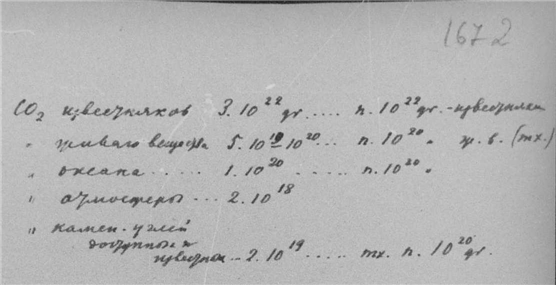 1672
CO₂ известняков 3.10²² gr. .... n.10²² gr. - известняки
" живого вещества 5.10¹⁹-10²⁰ ... n.10²⁰ " ж.в. (mx.)
" океана ..... 1.10²⁰ ..... n.10²⁰ "
" атмосферы ... 2.10¹⁸
" камен. углей
доступных и
известных ... 2.10¹⁹ .... mx. n. 10²⁰ gr.